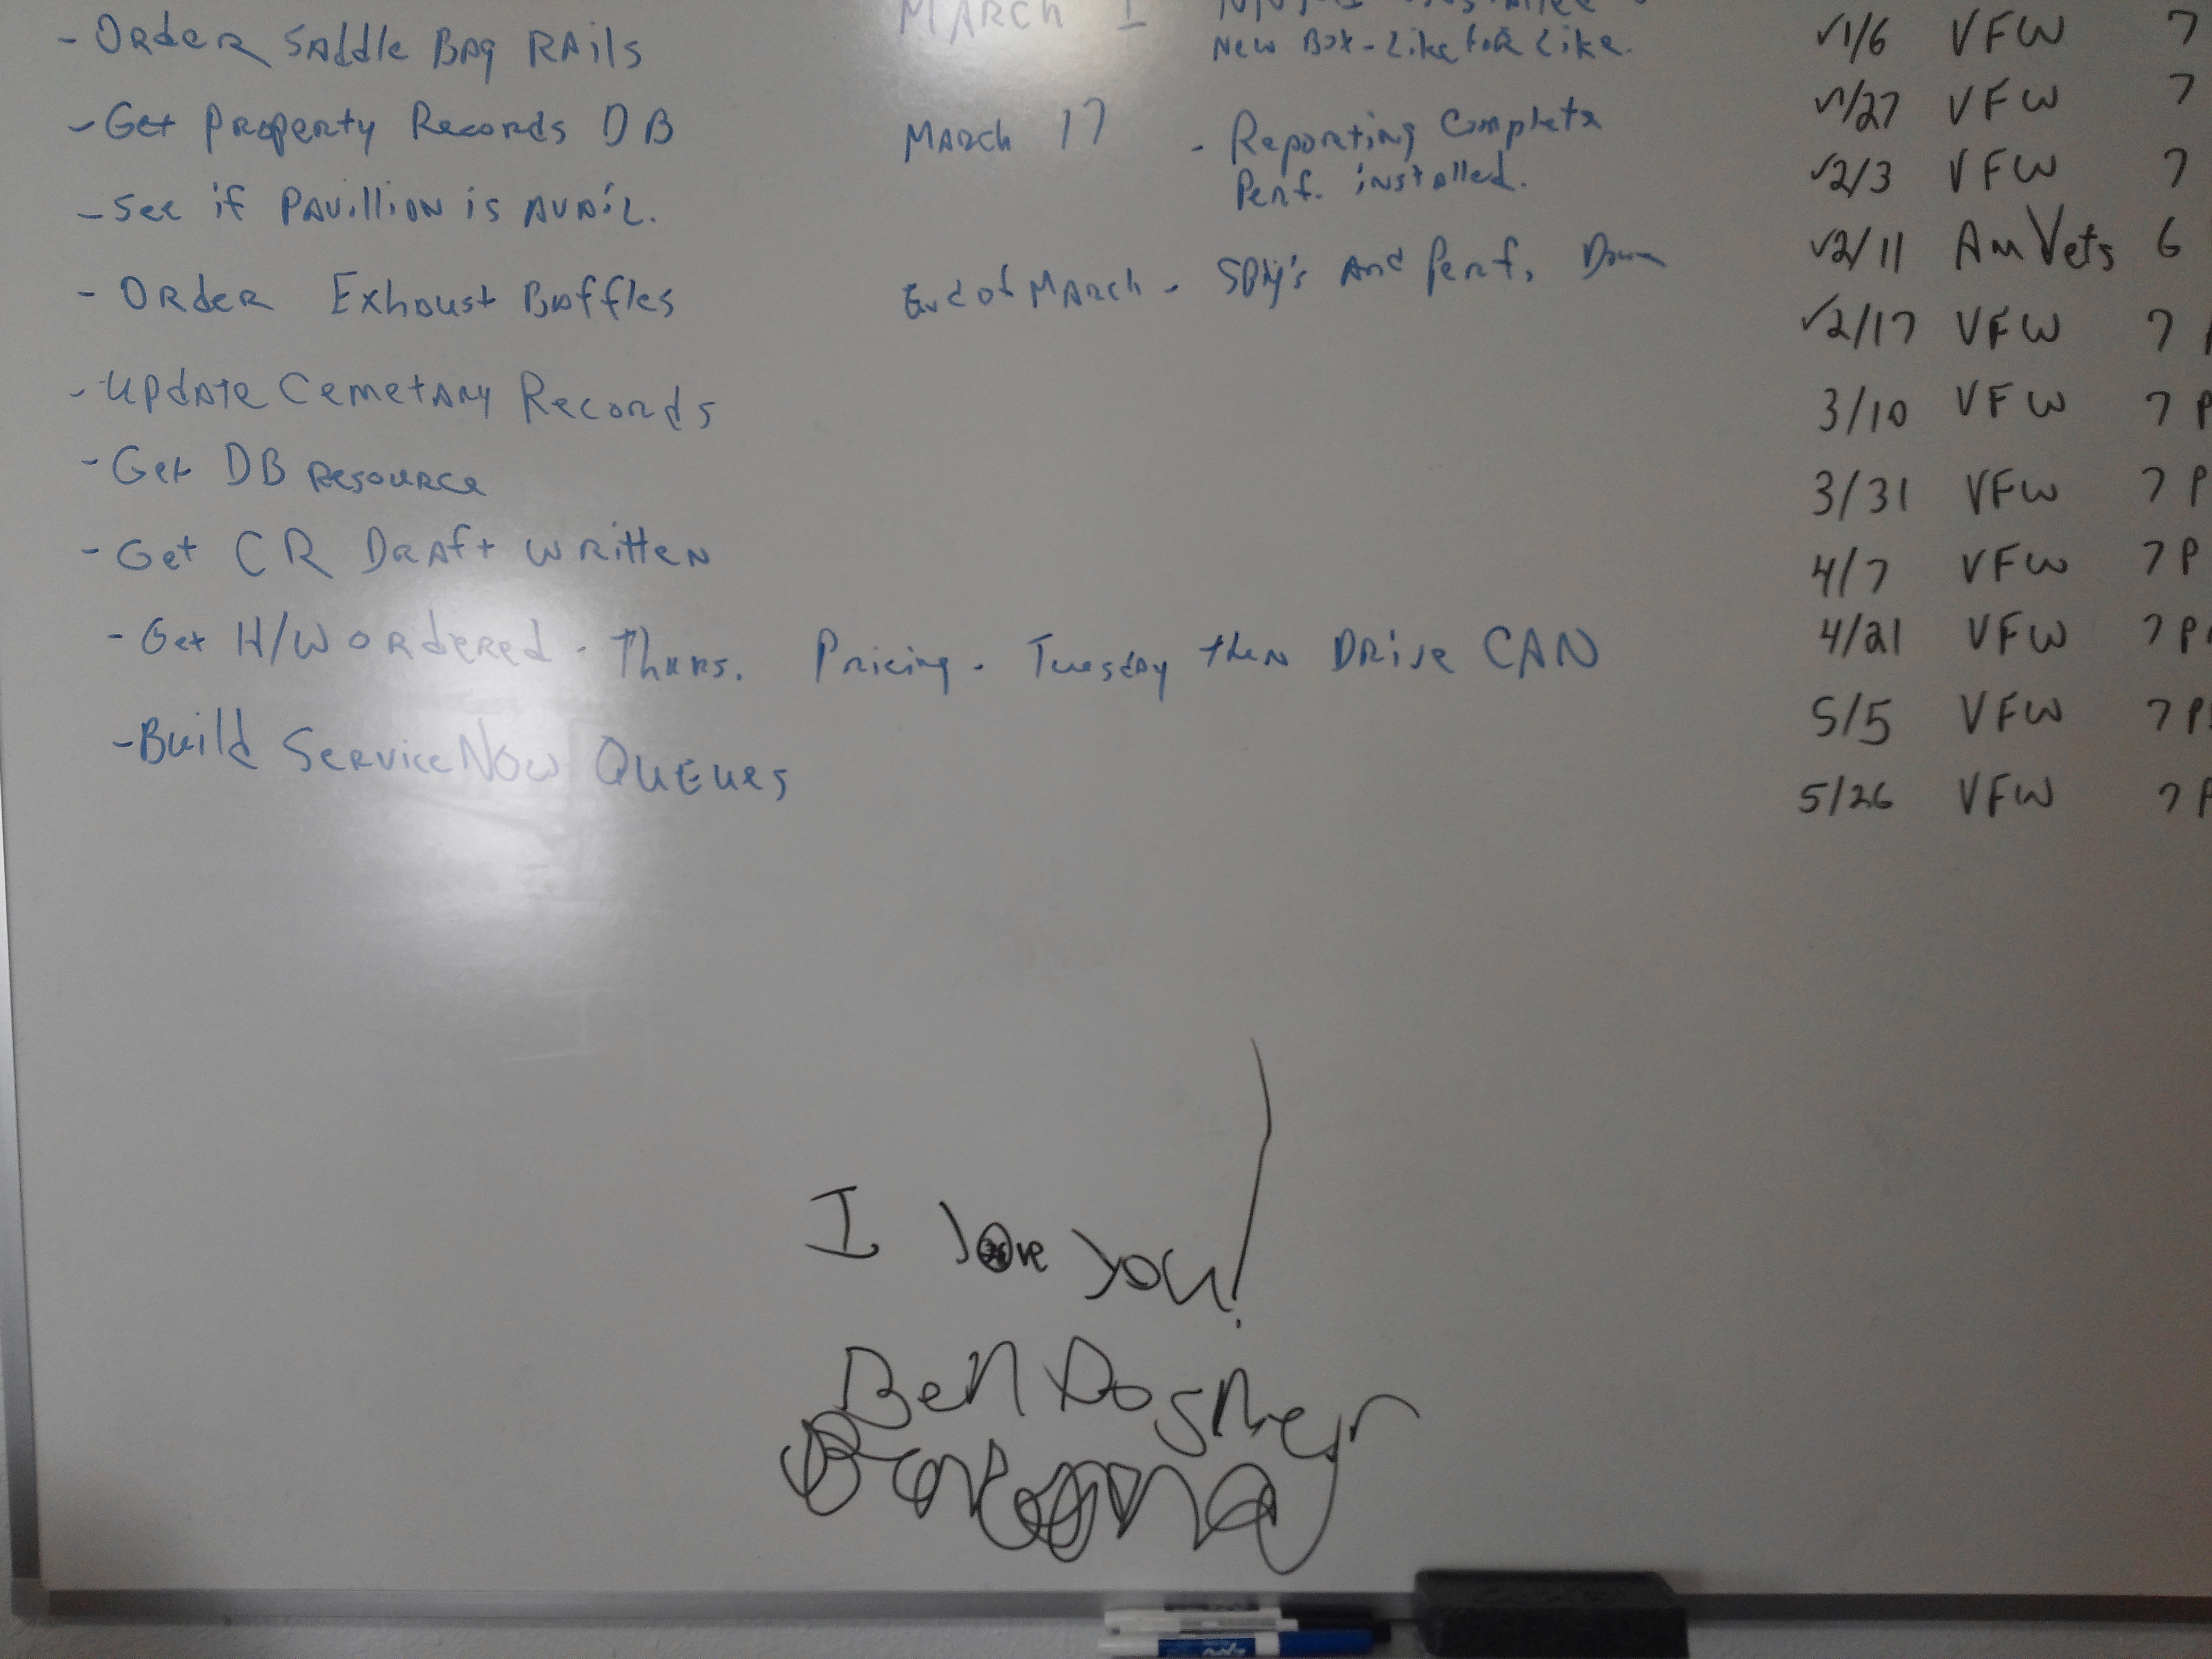 - Order Saddle Bag Rails
- Get Property Records DB
- See if Pavillion is Avail.
- Order Exhaust Baffles
- Update Cemetary Records
- Get DB Resource
- Get CR Draft Written
- Get H/W ordered - Thurs. Pricing - Tuesday then Drive CAN
- Build ServiceNow Queues
March 1
New Box - Like for Like.
March 17 - Reporting Complete
Perf. installed.
End of March - and Perf. Down
√1/6 VFW 7
√1/27 VFW 7
√2/3 VFW 7
√2/11 AmVets 6
√2/17 VFW 7
3/10 VFW 7 P
3/31 VFW 7 P
4/7 VFW 7 P
4/21 VFW 7 P
5/5 VFW 7 P
5/26 VFW 7 P
I love you!
Ben